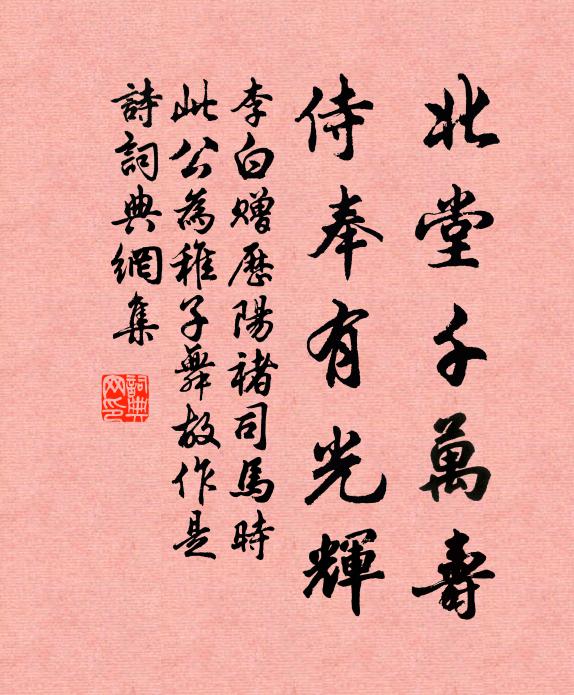 北堂千萬壽
侍奉有光輝
李白贈歷陽褚司馬時
此公為稚子舞故作是
詩詞典網集
詞典
网印